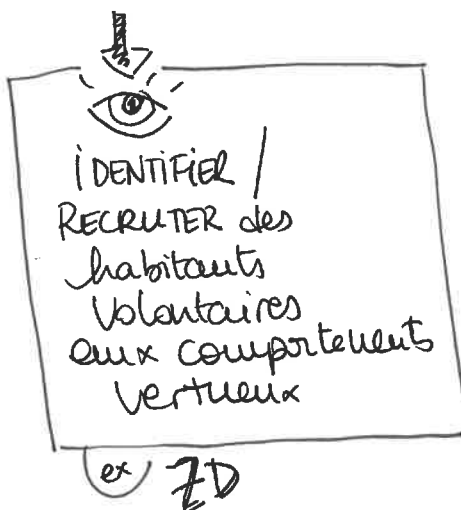 iDENTiFiER /
RECRUTER des
habitants
volontaires
aux comportements
vertueux
ex ZD